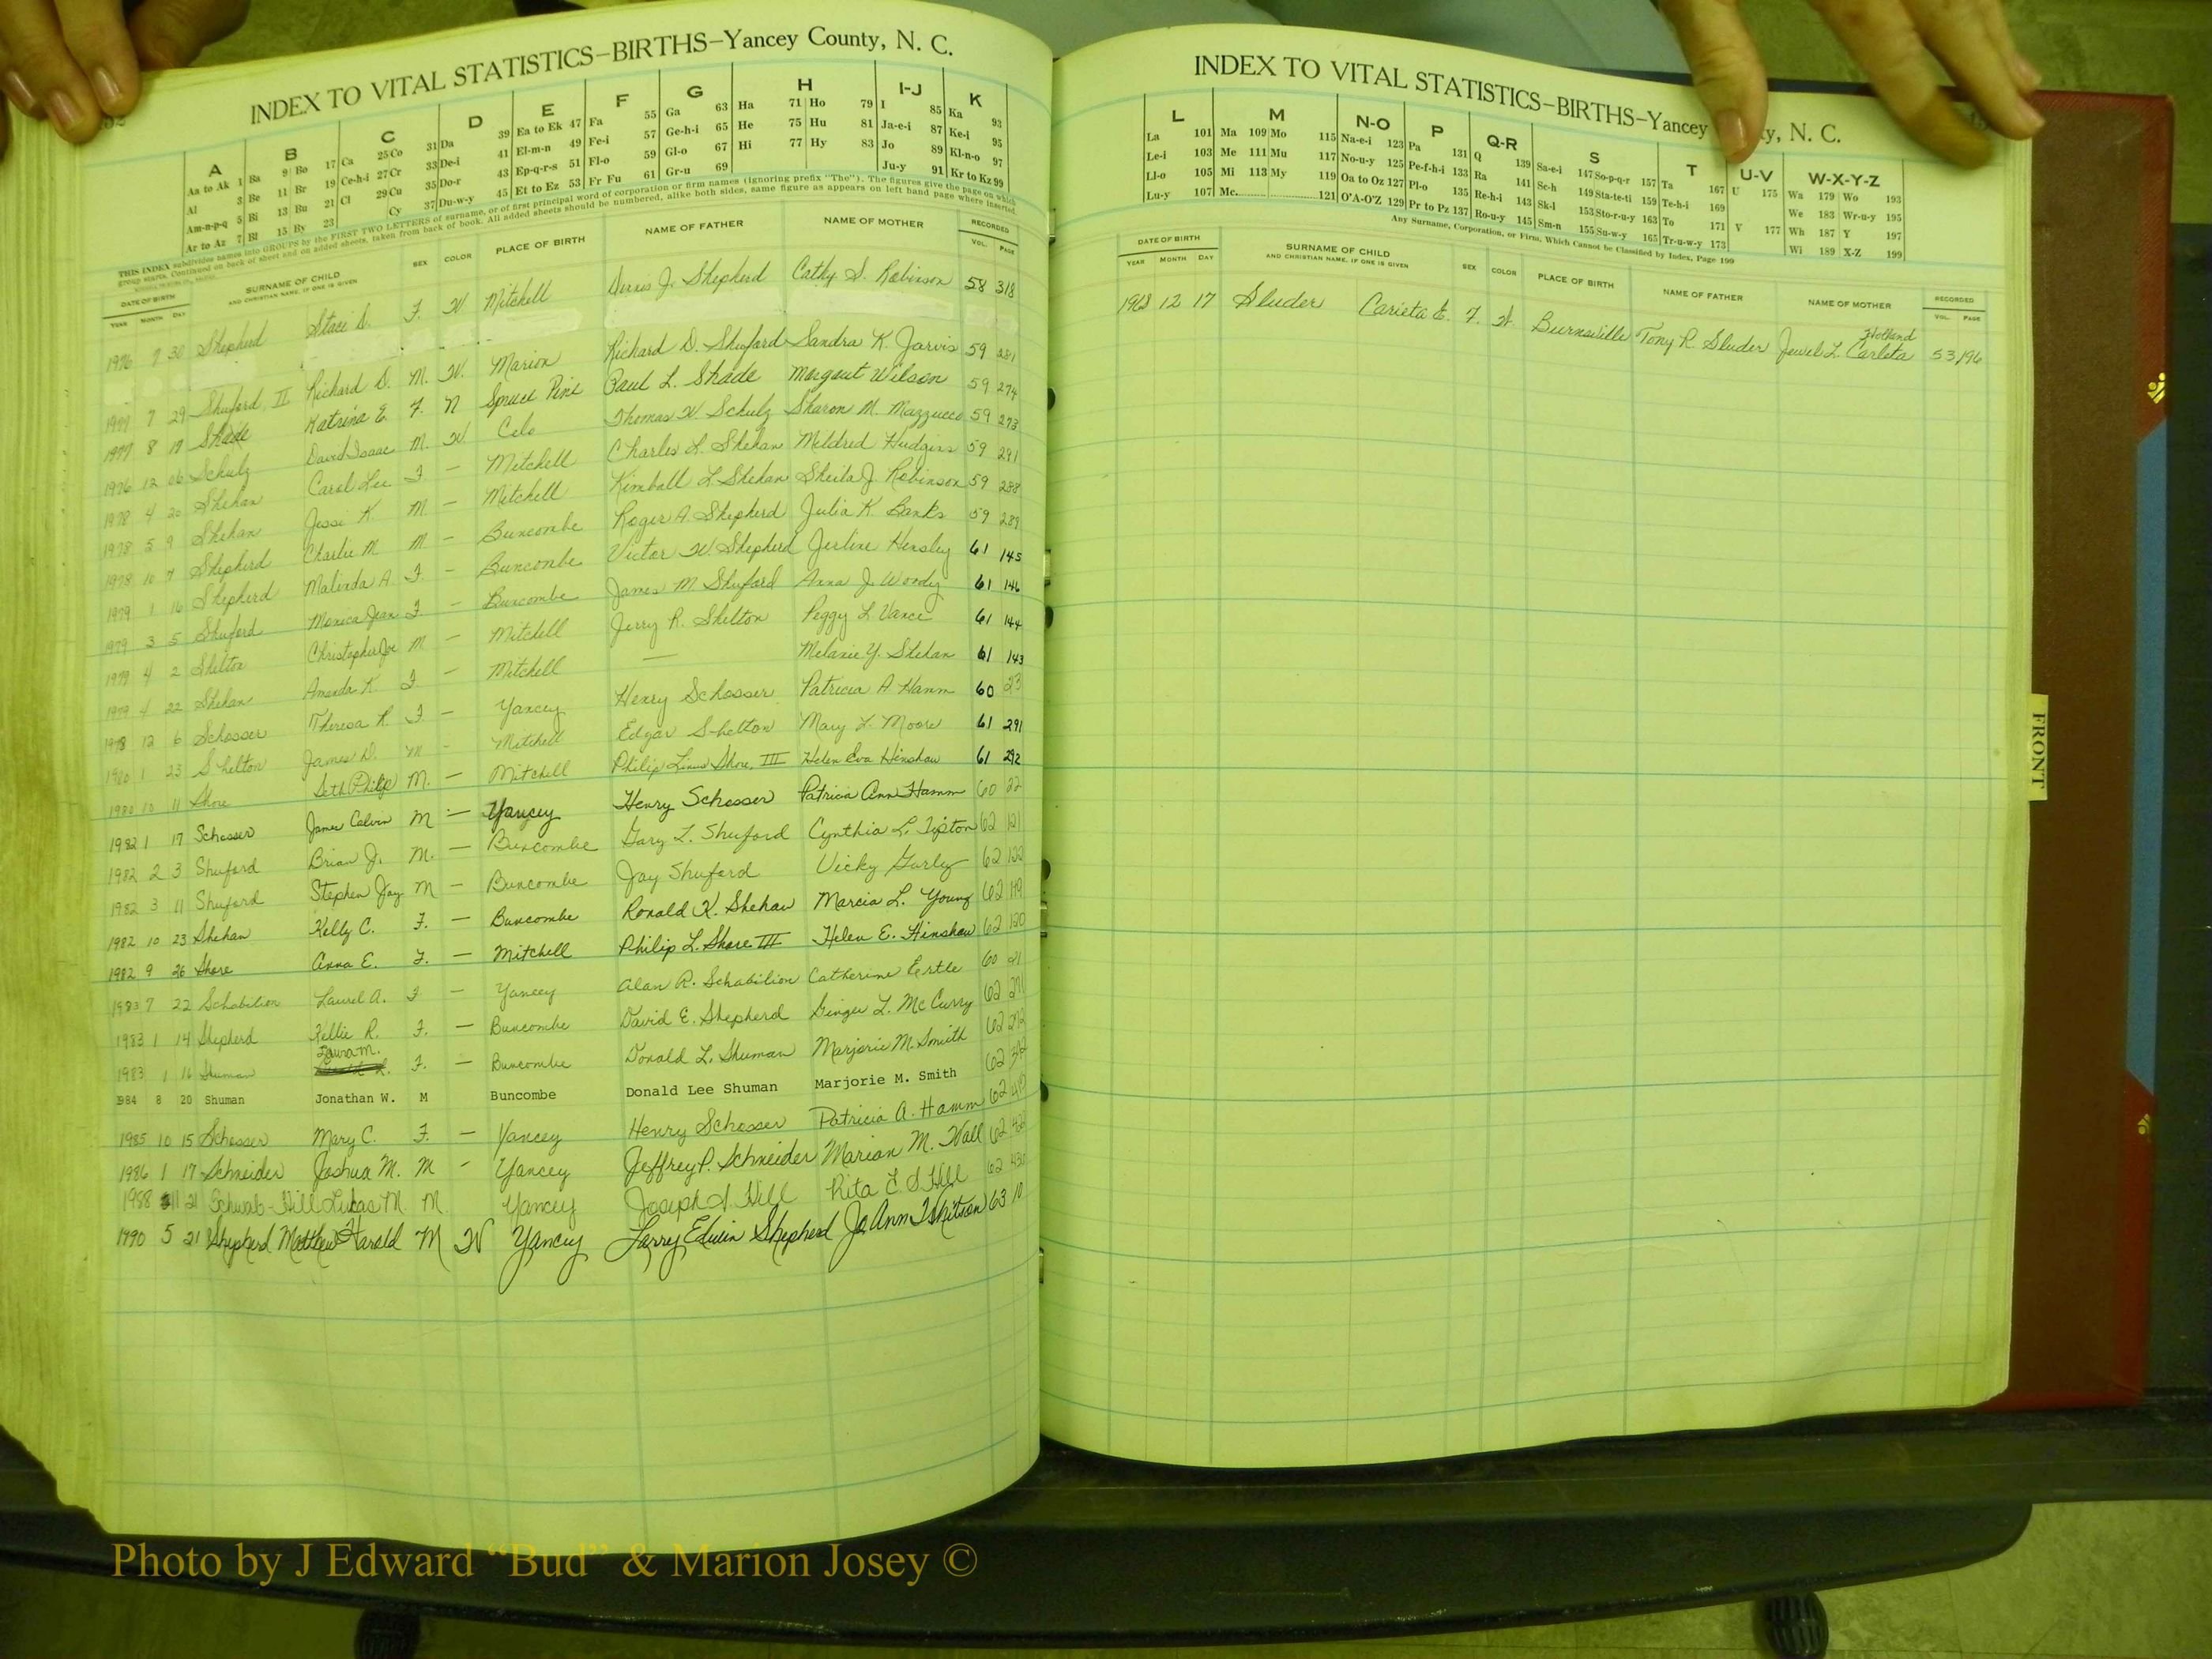 INDEX TO VITAL STATISTICS–BIRTHS–Yancey County, N. C.
A B C D E F G H I-J K
Aa to Ak 1 Ba 9 Bo 17 Ca 25 Co 31 Da 39 Ea to Ek 47 Fa 55 Ga 63 Ha 71 Ho 79 I 85 Ka 93
Al 3 Be 11 Br 19 Ce-h-i 27 Cr 33 De-i 41 El-m-n 49 Fe-i 57 Ge-h-i 65 He 75 Hu 81 Ja-e-i 87 Ke-i 95
Am-n-p-q 5 Bi 13 Bu 21 Cl 29 Cu 35 Do-r 43 Ep-q-r-s 51 Fl-o 59 Gl-o 67 Hi 77 Hy 83 Jo 89 Kl-n-o 97
Ar to Az 7 Bl 15 By 23 Cy 37 Du-w-y 45 Et to Ez 53 Fr Fu 61 Gr-u 69 Ju-y 91 Kr to Kz 99
THIS INDEX subdivides names into GROUPS by the FIRST TWO LETTERS of surname, or of first principal word of corporation or firm names (ignoring prefix "The"). The figures give the page on which
group starts. Continued on back of sheet and on added sheets, taken from back of book. All added sheets should be numbered, alike both sides, same figure as appears on left hand page where inserted.
DATE OF BIRTH SURNAME OF CHILD SEX COLOR PLACE OF BIRTH NAME OF FATHER NAME OF MOTHER RECORDED
YEAR MONTH DAY AND CHRISTIAN NAME, IF ONE IS GIVEN VOL. PAGE
1976 7 30 Shepherd Staci D. F. W Mitchell J. Shepherd Cathy S. Robinson 58 318
1977 7 29 Shuford, II Richard D. M. W. Marion Richard D. Shuford Sandra K Jarvis 59 281
1977 8 17 Shade Katrina E. F. N Spruce Pine Paul L. Shade Margaut Wilson 59 274
1976 12 06 Schulz David Isaac M. W. Celo Thomas W. Schulz Sharon M. Mazzucco 59 273
1978 4 20 Shehan Carol Lee F — Mitchell Charles L. Shehan Mildred Hudgins 59 291
1978 5 9 Shehan Jessi K. M — Mitchell Kimball L Shehan Sheila J. Robinson 59 288
1978 10 7 Shepherd Charlie M M — Buncombe Roger A. Shepherd Julia K. Banks 59 289
1979 1 16 Shepherd Malinda A. F. — Buncombe Victor W. Shepherd Jerline Hensley 61 145
1979 3 5 Shuford Monica Jean F. — Buncombe James M. Shuford Anna J. Woody 61 146
1979 4 2 Shelton Christopher Joe M — Mitchell Jerry R. Shelton Peggy L. Vance 61 144
1979 4 22 Shehan Amanda K. F. — Mitchell — Melanie Y. Shehan 61 143
1978 12 6 Schosser Theresa R. F — Yancey Henry Schosser Patricia A Hamm 60 23
1980 1 23 Shelton James D. M — Mitchell Edgar Shelton Mary L. Moore 61 291
1980 10 11 Shore Seth Philip M. — Mitchell Philip Linus Shore, III Helen Eva Hinshaw 61 292
1982 1 17 Schosser James Calvin M — Yancey Henry Schosser Patricia Ann Hamm 60 22
1982 2 3 Shuford Brian J. M. — Buncombe Gary L. Shuford Cynthia L. Tipton 62 121
1982 3 11 Shuford Stephen Jay M — Buncombe Jay Shuford Vicky Gurley 62 122
1982 10 23 Shehan Kelly C. F. — Buncombe Ronald K. Shehan Marcia L. Young 62 119
1982 9 26 Shore Anna E. F. — Mitchell Philip L. Shore III Helen E. Hinshaw 62 120
1983 7 22 Schabilion Laurel A. F — Yancey Alan R. Schabilion Catherine Ertle 60 21
1983 1 14 Shepherd Kellie R. F. — Buncombe David E. Shepherd Ginger L. McCurry 62 291
1983 1 16 Shuman Laura M. F. — Buncombe Donald L. Shuman Marjorie M. Smith 62 292
1984 8 20 Shuman Jonathan W. M Buncombe Donald Lee Shuman Marjorie M. Smith 62
1985 10 15 Schosser Mary C. F. — Yancey Henry Schosser Patricia A. Hamm 62
1986 1 17 Schneider Joshua M. M - Yancey Jeffrey P. Schneider Marian M. Wall 62
1988 11 21 Schwab-Hill Lukas M. M. Yancey Joseph A. Hill Rita E. S. Hill 62
1990 5 21 Shepherd Matthew Harald M W Yancey Larry Edwin Shepherd Jo Ann Whitson 63 10
INDEX TO VITAL STATISTICS–BIRTHS–Yancey ty, N. C.
L M N-O P Q-R S T U-V W-X-Y-Z
La 101 Ma 109 Mo 115 Na-e-i 123 Pa 131 Q 139 Sa-e-i 147 So-p-q-r 157 Ta 167 U 175 Wa 179 Wo 193
Le-i 103 Me 111 Mu 117 No-u-y 125 Pe-f-h-i 133 Ra 141 Sc-h 149 Sta-te-ti 159 Te-h-i 169 We 183 Wr-u-y 195
Ll-o 105 Mi 113 My 119 Oa to Oz 127 Pl-o 135 Re-h-i 143 Sk-l 153 Sto-r-u-y 163 To 171 V 177 Wh 187 Y 197
Lu-y 107 Mc 121 O'A-O'Z 129 Pr to Pz 137 Ro-u-y 145 Sm-n 155 Su-w-y 165 Tr-u-w-y 173 Wi 189 X-Z 199
Any Surname, Corporation, or Firm, Which Cannot be Classified by Index, Page 199
DATE OF BIRTH SURNAME OF CHILD SEX COLOR PLACE OF BIRTH NAME OF FATHER NAME OF MOTHER RECORDED
YEAR MONTH DAY AND CHRISTIAN NAME, IF ONE IS GIVEN VOL. PAGE
12 17 Sluder Carieta E. F. W. Burnsville Tony R. Sluder Jewel L. Carleta Holland 53 196
FRONT
Photo by J Edward “Bud” & Marion Josey ©